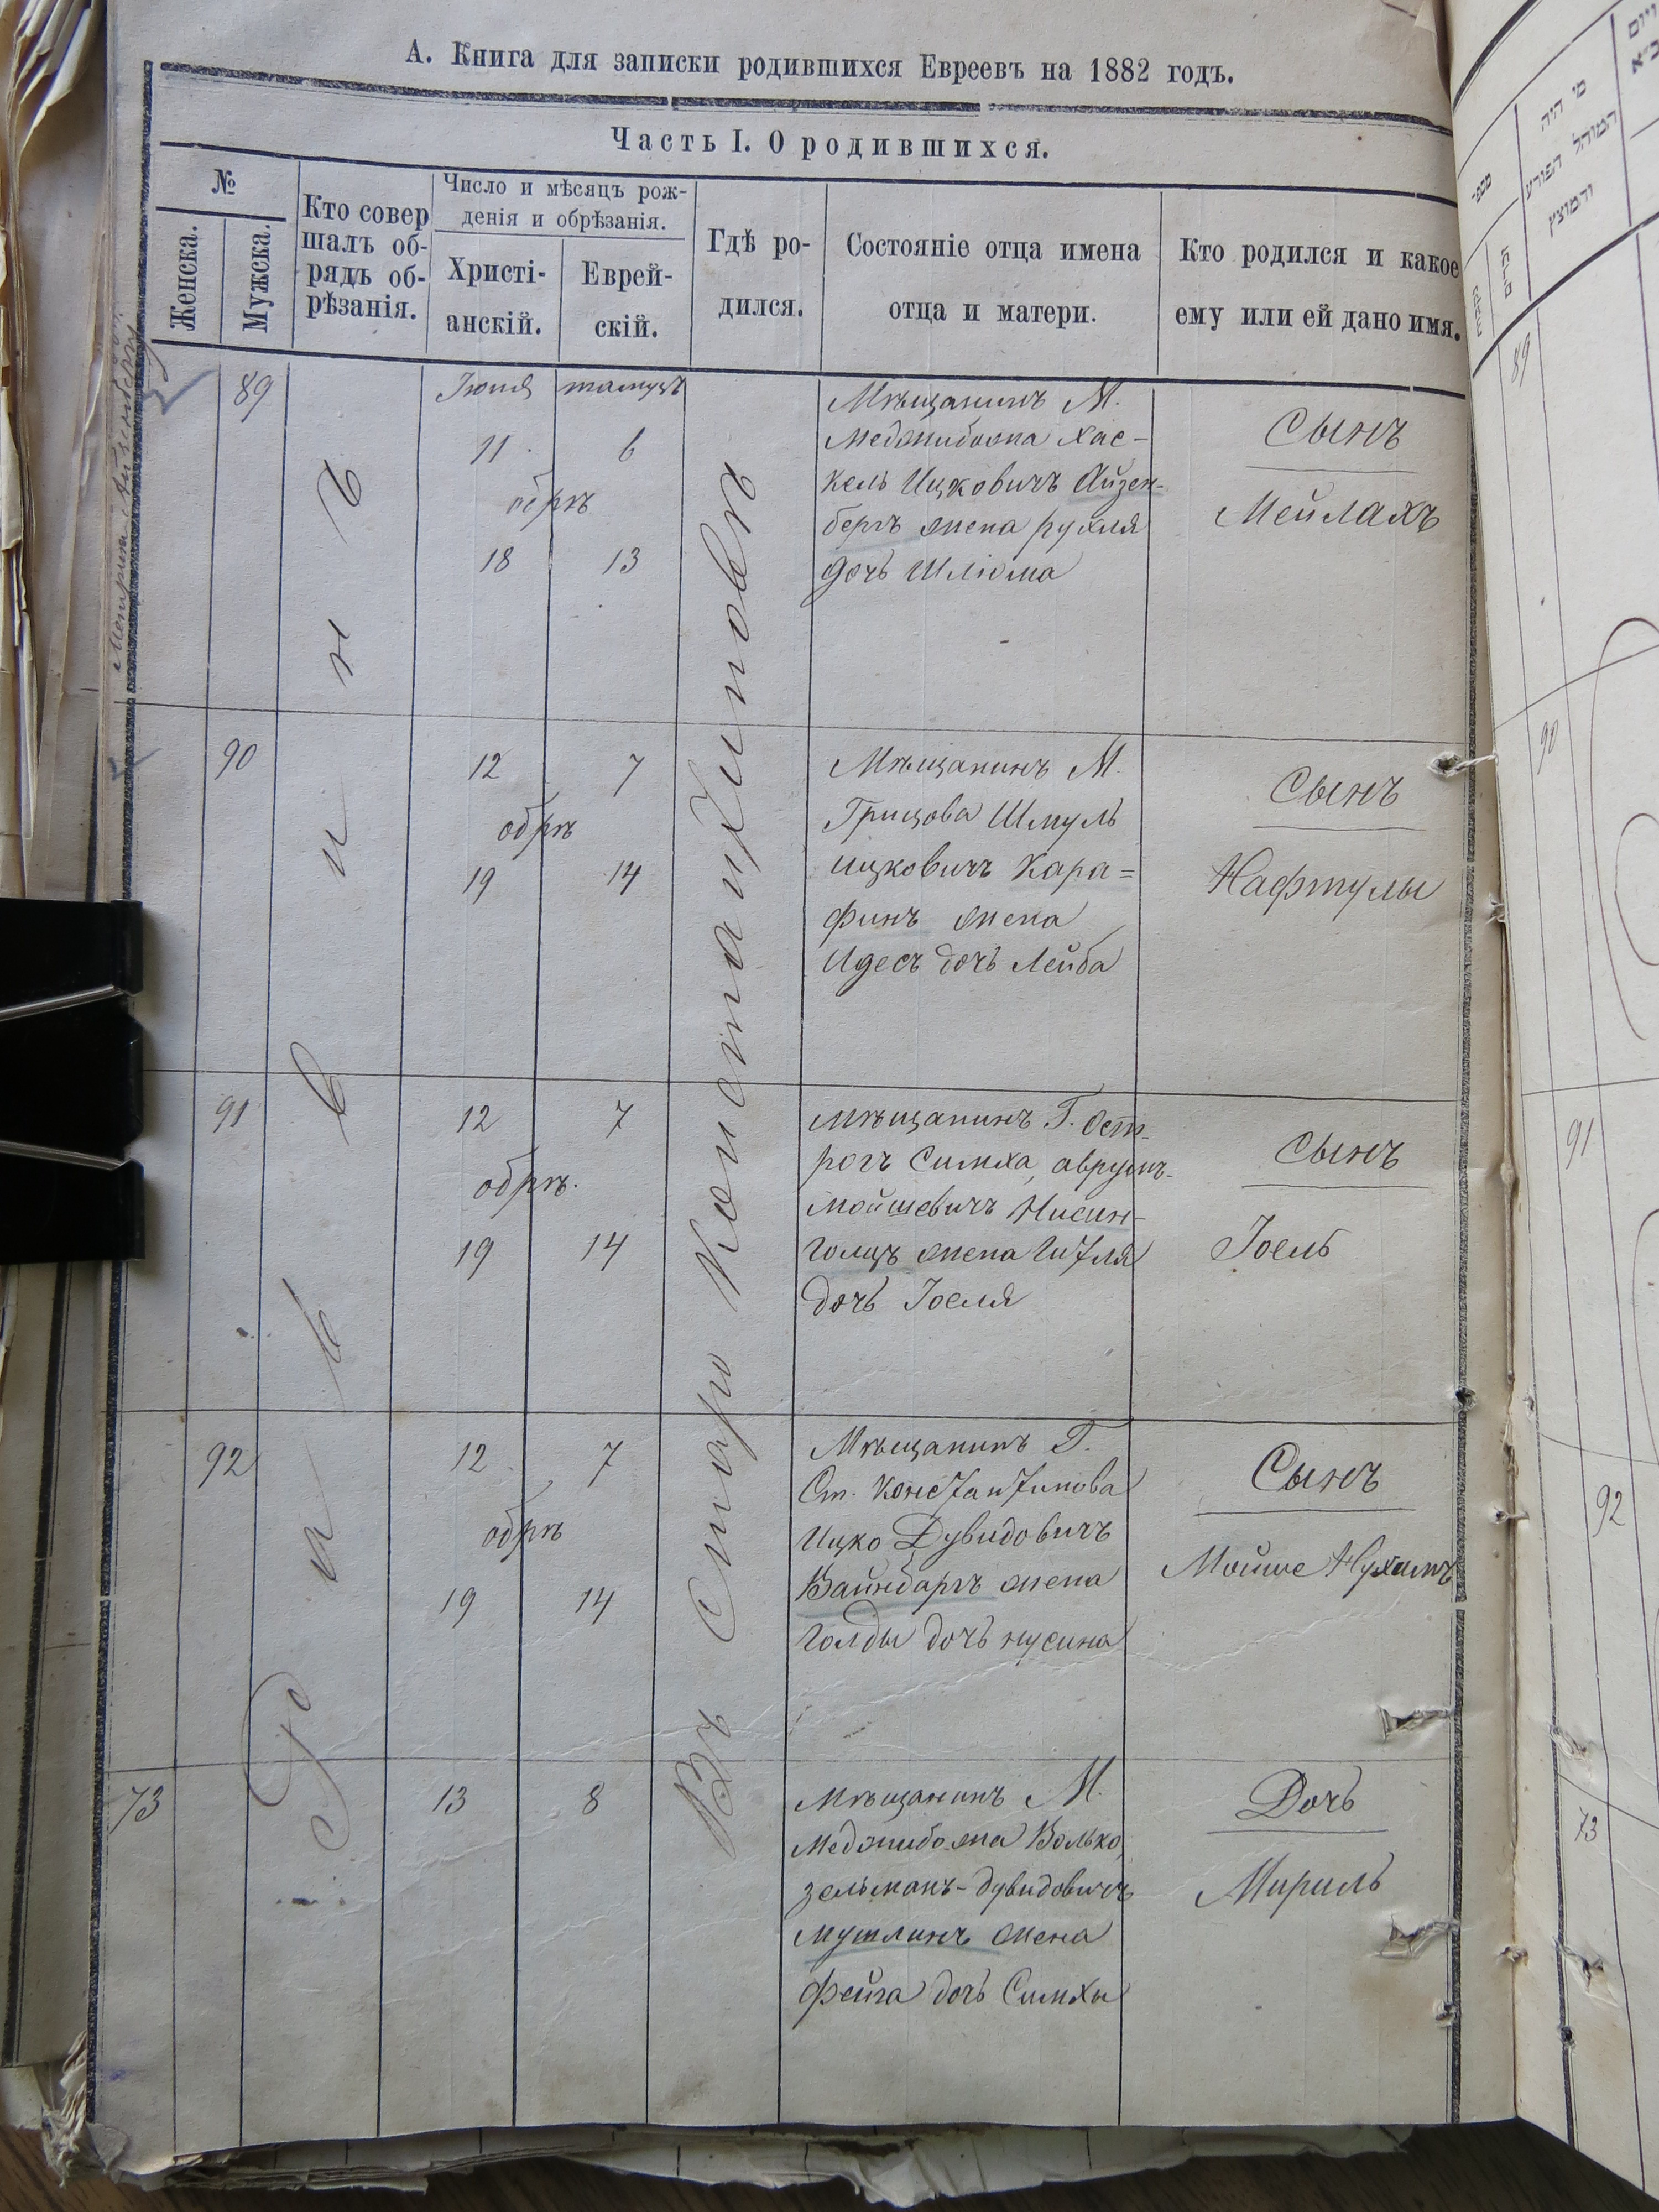 А. Книга для записки родившихся Евреевъ на 1882 годъ.
Часть I. О родившихся.
№
Женска.
Мужска.
Кто совер
шалъ об-
рядъ об-
рѣзанія.
Число и мѣсяцъ рож-
денія и обрѣзанія.
Христі-
анскій.
Еврей-
скій.
Гдѣ ро-
дился.
Состояніе отца имена
отца и матери.
Кто родился и какое
ему или ей дано имя.
Раввинъ
Въ Старо Константиновѣ
89
Іюня тамузъ
11 6
обрѣ
18 13
Мѣщанинъ М.
Меджибожа Хас-
кель Ицковичъ Айзен-
бергъ жена рухля
дочь Шліома
Сынъ
Мейлахъ
90
12 7
обрѣ
19 14
Мѣщанинъ М.
Грицова Шмуль
ицковичъ Кара=
финъ жена
Идесъ дочь Лейба
Сынъ
Нафтулы
91
12 7
обрѣ.
19 14
Мѣщанинъ Г. Ост-
рогъ Симха, аврумъ-
мойшевичъ Нисин-
голцъ жена Гитля
дочь Іоеля
Сынъ
Іоель
92
12 7
обрѣ
19 14
Мѣщанинъ Г.
Ст. Константинова
Ицко Дувидовичъ
Вайнбаргъ жена
Голды дочь нусина
Сынъ
Мойше Нухимъ
73
13 8
Мѣщанинъ М.
Меджибожа Волько,
зельманъ-дувидовичъ
мутлинъ жена
Фейга дочь Симхы
Дочь
Мириль
מי היה
המוהל הפורע
והמוצץ
89
90
91
92
73